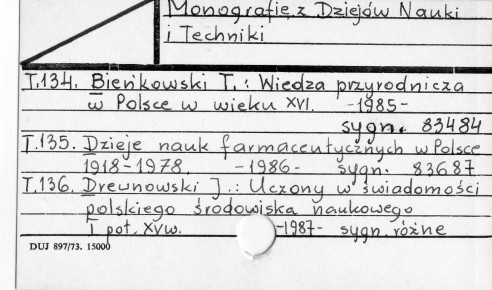 Monografie z Dziejów Nauki
i Techniki
T.134. Bieńkowski T.: Wiedza przyrodnicza
w Polsce w wieku XVI. -1985-
sygn. 83484
T.135. Dzieje nauk farmaceutycznych w Polsce
1918-1978. -1986- sygn. 83687
T.136. Drewnowski J.: Uczony w świadomości
polskiego środowiska naukowego
I poł. XVw. -1987- sygn. różne
DUJ 897/73. 15000